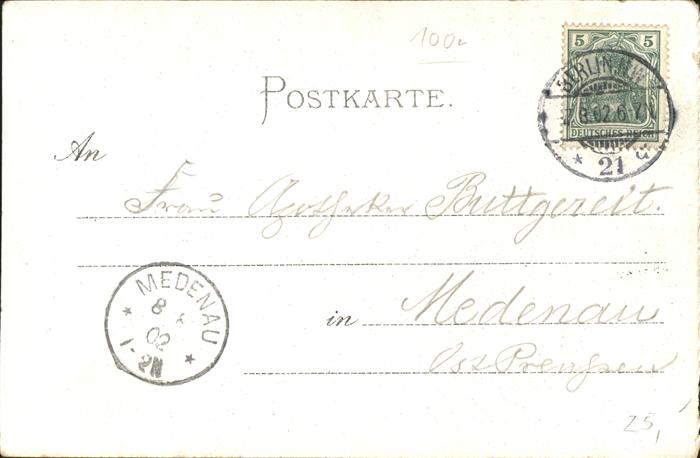 100
5 5
BERLIN N.W.
7.8.02.6-7
DEUTSCHES REICH
* 21 a
POSTKARTE.
An
Frau Apotheker Buttgereit.
MEDENAU
8
02
1-2N
in Medenau
Ost Preußen
25,